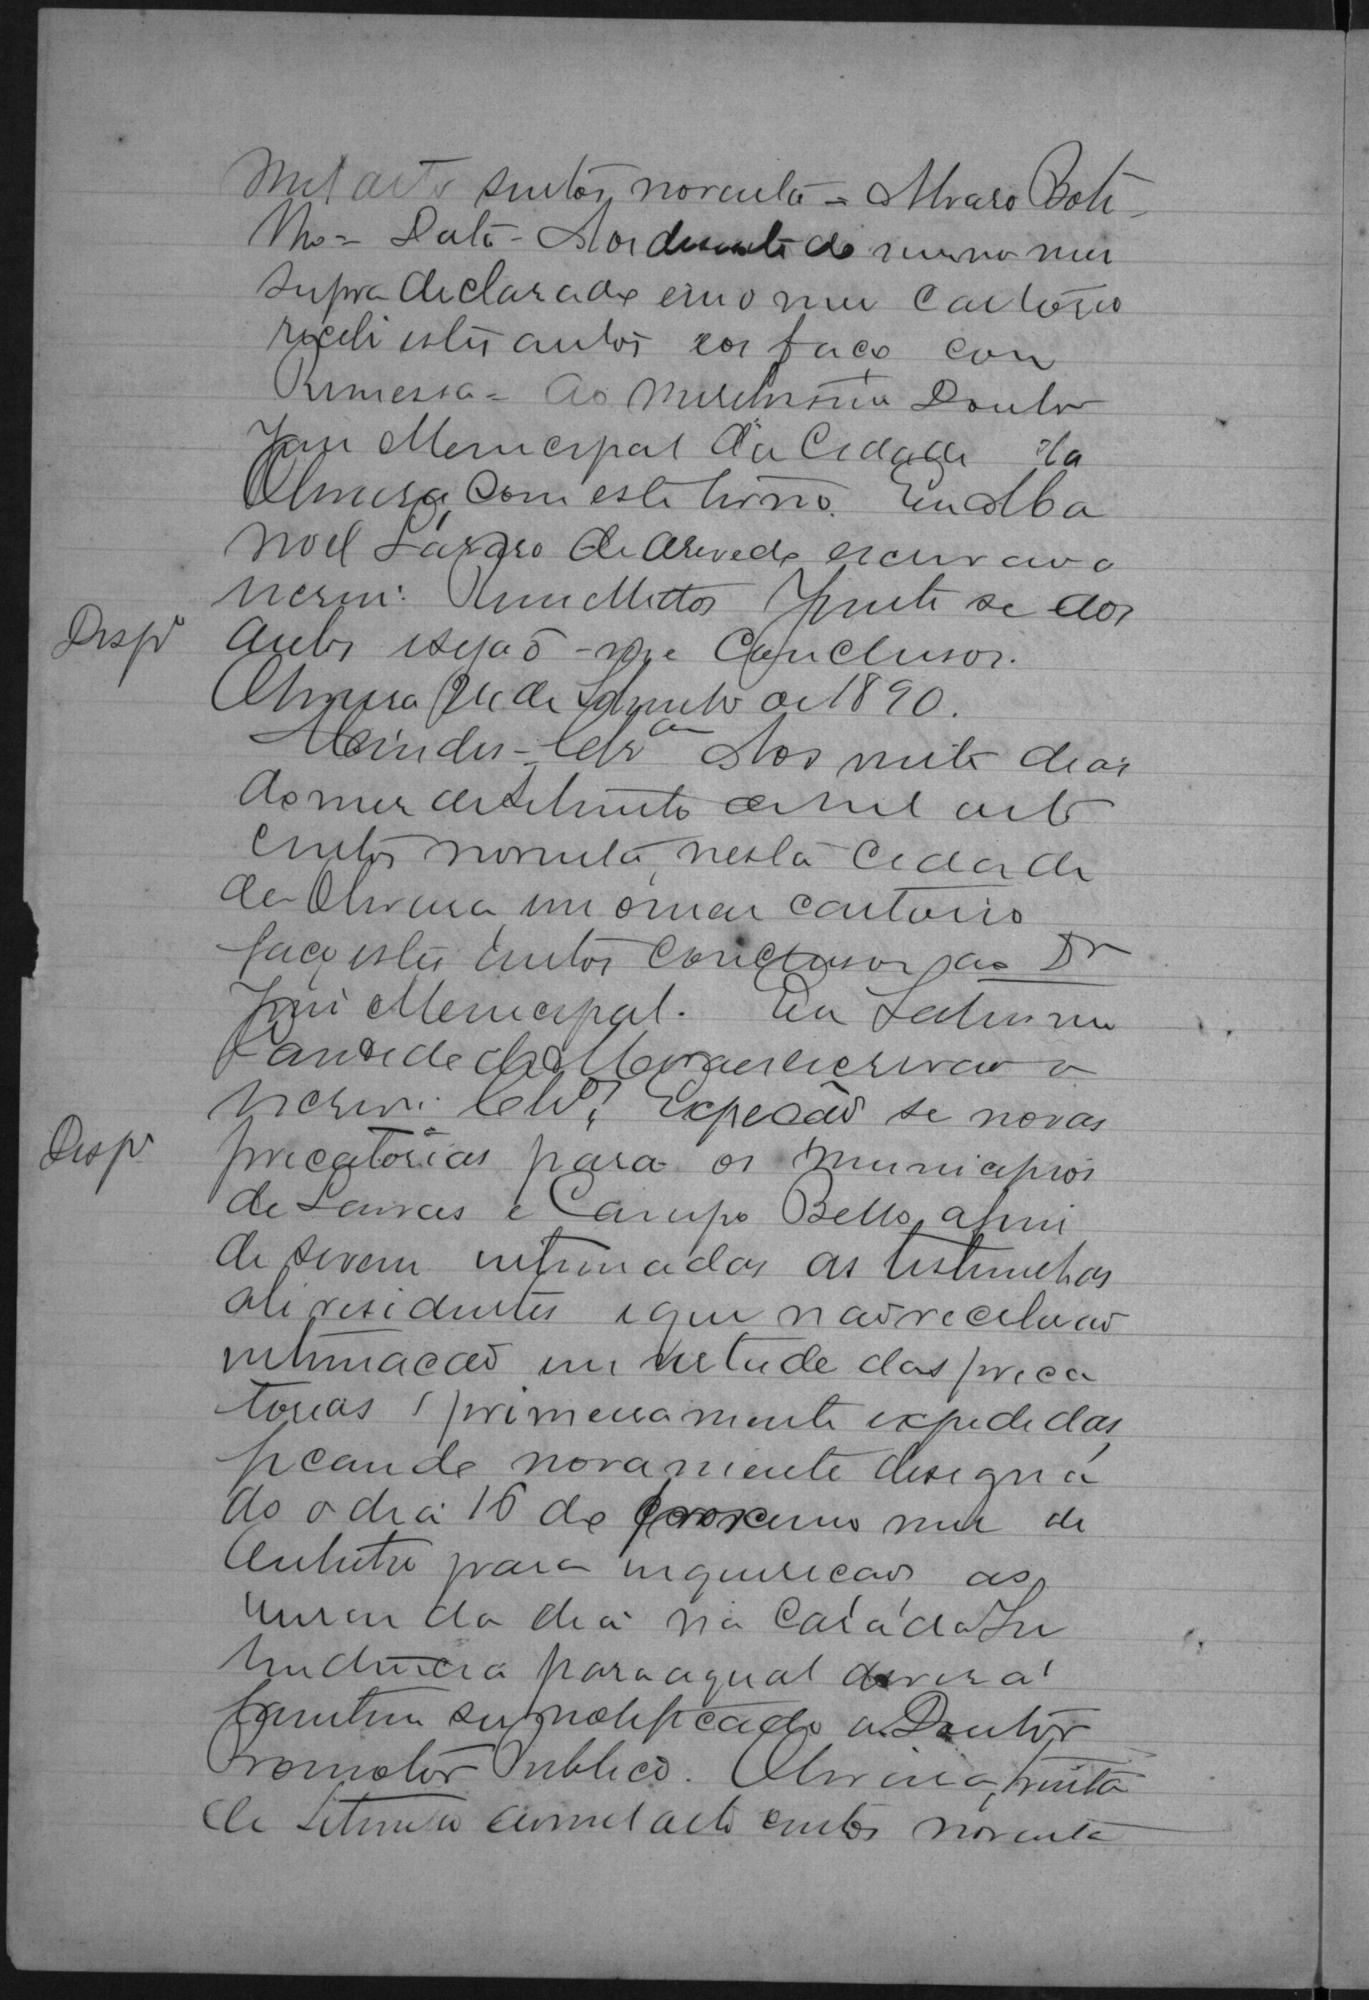 mil oito centos noventa = Alvaro Bote
lho = Data - Aos do mesmo mez
supra declarado em o meu Cartorio
recebi estes autos e os faço com
Remessa = Ao Meretissimo Doutor
Juiz Municipal da Cidade da
Oliveira, com este termo. Eu Alba
noel Lazaro de Azevedo escrivão o
escrevi. Junte se aos
Despº autos e sejaõ - me Conclusos.
Oliveira de Setembro de 1890.
Mendes = Clsam Aos vinte dias
do mez de Setembro de mil oito
centos noventa, nesta Cidade
de Oliveira em o meu cartorio
faço estes autos Conclusos ao Dr
Juiz Municipal. Eu
Candido de Moraes escrivão o
escrevi. Clsos Expeção se novas
Despº precatorias para os municipios
de Lavras e Campo Bello, afim
de serem intimadas as testemunhas
ali residentes e que naõ receberaõ
intimacaõ em virtude das preca
torias primeiramente expedidas,
ficando novamente designa
do o dia 16 do proximo mez de
Outubro para inquiricaõ as
onze da dia na Casa da In
tendencia para a qual devera
tambem ser notificado o Doutor
Promotor Publico. Oliveira, trinta
de Setembro de mil oito centos noventa